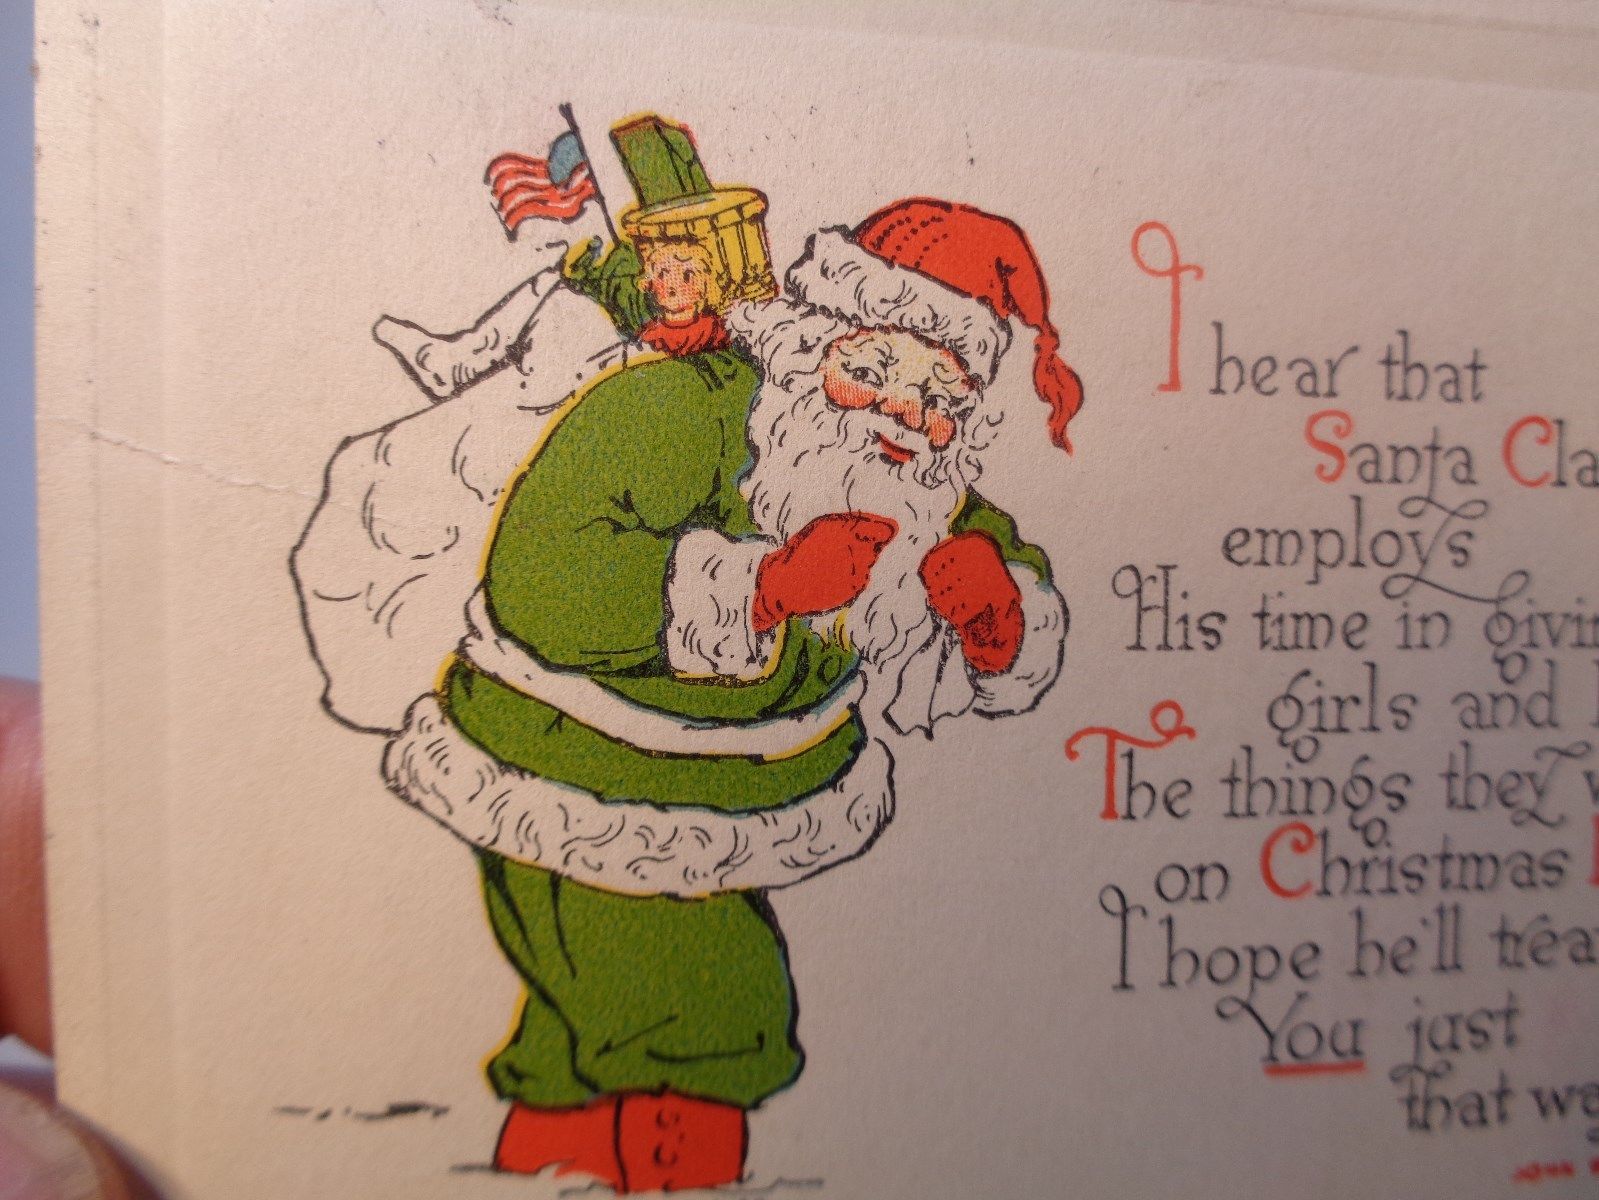 I hear that
Santa Cla
employs
His time in givin
girls and
The things they w
on Christmas
I hope he'll trea
You just
that wa
JOHN